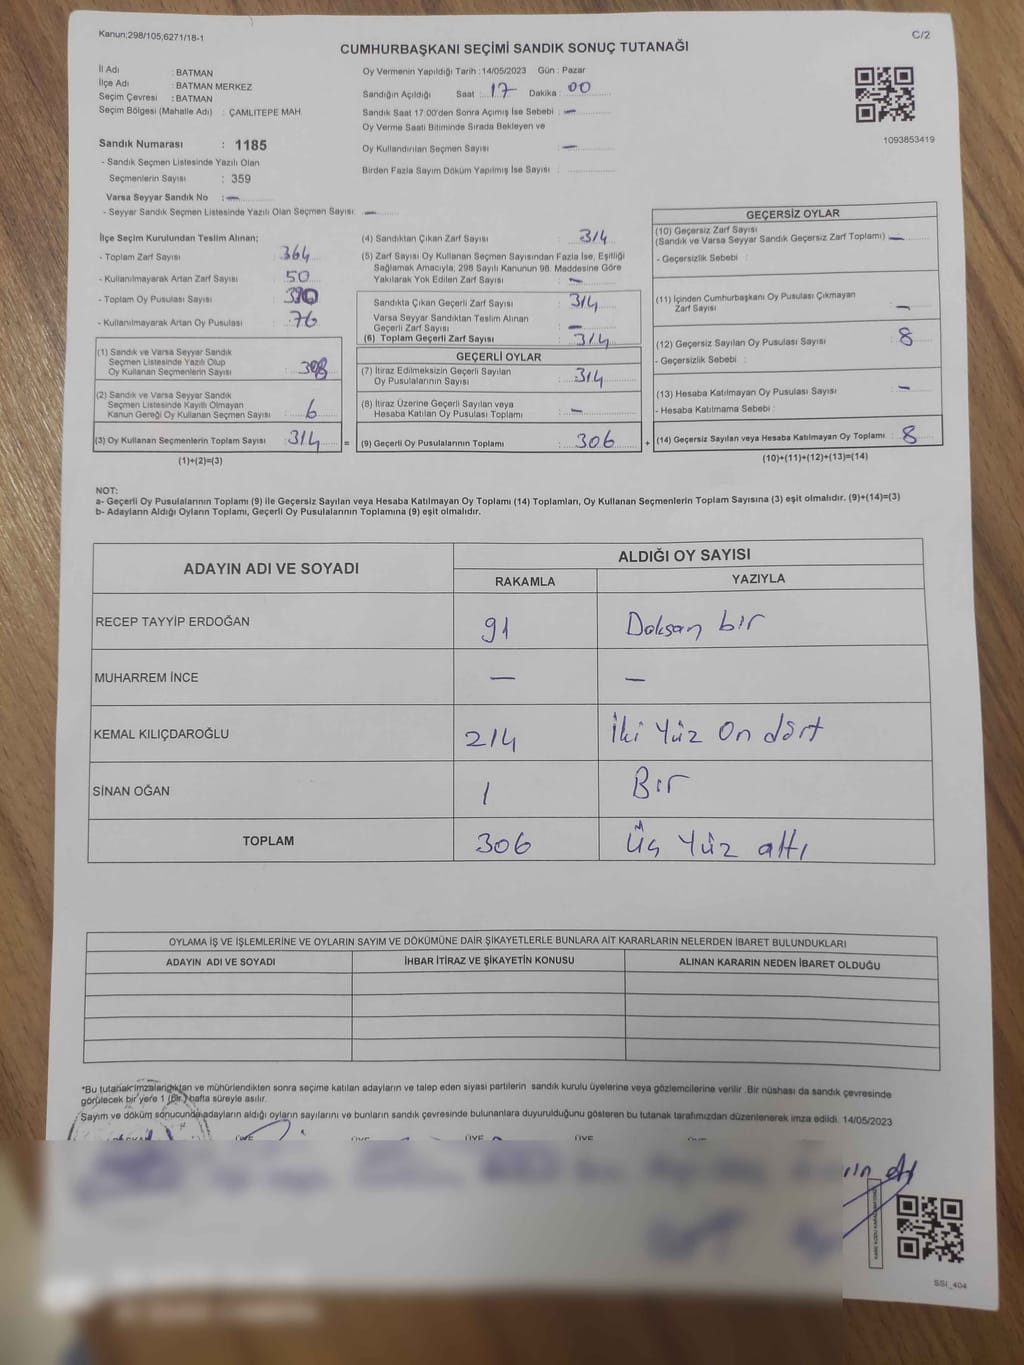 Kanun;298/105,6271/18-1
C/2
CUMHURBAŞKANI SEÇİMİ SANDIK SONUÇ TUTANAĞI
İl Adı : BATMAN
İlçe Adı : BATMAN MERKEZ
Seçim Çevresi : BATMAN
Seçim Bölgesi (Mahalle Adı) : ÇAMLITEPE MAH.
Sandık Numarası : 1185
- Sandık Seçmen Listesinde Yazılı Olan
Seçmenlerin Sayısı : 359
Varsa Seyyar Sandık No : —
- Seyyar Sandık Seçmen Listesinde Yazılı Olan Seçmen Sayısı: —
Oy Vermenin Yapıldığı Tarih : 14/05/2023 Gün : Pazar
Sandığın Açıldığı Saat : 17 Dakika : 00
Sandık Saat 17:00'den Sonra Açımış İse Sebebi : —
Oy Verme Saati Bitiminde Sırada Bekleyen ve
Oy Kullandırılan Seçmen Sayısı : —
Birden Fazla Sayım Döküm Yapılmış İse Sayısı :
1093853419
İlçe Seçim Kurulundan Teslim Alınan;
- Toplam Zarf Sayısı : 364
- Kullanılmayarak Artan Zarf Sayısı : 50
- Toplam Oy Pusulası Sayısı : 390
- Kullanılmayarak Artan Oy Pusulası : 76
(1) Sandık ve Varsa Seyyar Sandık
Seçmen Listesinde Yazılı Olup
Oy Kullanan Seçmenlerin Sayısı : 308
(2) Sandık ve Varsa Seyyar Sandık
Seçmen Listesinde Kayıtlı Olmayan
Kanun Gereği Oy Kullanan Seçmen Sayısı : 6
(3) Oy Kullanan Seçmenlerin Toplam Sayısı : 314 =
(1)+(2)=(3)
(4) Sandıktan Çıkan Zarf Sayısı : 314
(5) Zarf Sayısı Oy Kullanan Seçmen Sayısından Fazla İse, Eşitliği
Sağlamak Amacıyla, 298 Sayılı Kanunun 98. Maddesine Göre
Yakılarak Yok Edilen Zarf Sayısı : —
Sandıkta Çıkan Geçerli Zarf Sayısı : 314
Varsa Seyyar Sandıktan Teslim Alınan
Geçerli Zarf Sayısı : —
(6) Toplam Geçerli Zarf Sayısı : 314
GEÇERLİ OYLAR
(7) İtiraz Edilmeksizin Geçerli Sayılan
Oy Pusulalarının Sayısı : 314
(8) İtiraz Üzerine Geçerli Sayılan veya
Hesaba Katılan Oy Pusulası Toplamı : —
(9) Geçerli Oy Pusulalarının Toplamı : 306 +
GEÇERSİZ OYLAR
(10) Geçersiz Zarf Sayısı
(Sandık ve Varsa Seyyar Sandık Geçersiz Zarf Toplamı) : —
- Geçersizlik Sebebi :
(11) İçinden Cumhurbaşkanı Oy Pusulası Çıkmayan
Zarf Sayısı : —
(12) Geçersiz Sayılan Oy Pusulası Sayısı : 8
- Geçersizlik Sebebi :
(13) Hesaba Katılmayan Oy Pusulası Sayısı : —
- Hesaba Katılmama Sebebi :
(14) Geçersiz Sayılan veya Hesaba Katılmayan Oy Toplamı : 8
(10)+(11)+(12)+(13)=(14)
NOT:
a- Geçerli Oy Pusulalarının Toplamı (9) ile Geçersiz Sayılan veya Hesaba Katılmayan Oy Toplamı (14) Toplamları, Oy Kullanan Seçmenlerin Toplam Sayısına (3) eşit olmalıdır. (9)+(14)=(3)
b- Adayların Aldığı Oyların Toplamı, Geçerli Oy Pusulalarının Toplamına (9) eşit olmalıdır.
ADAYIN ADI VE SOYADI
ALDIĞI OY SAYISI
RAKAMLA YAZIYLA
RECEP TAYYİP ERDOĞAN 91 Doksan bir
MUHARREM İNCE — —
KEMAL KILIÇDAROĞLU 214 İki Yüz On dört
SİNAN OĞAN 1 Bir
TOPLAM 306 Üç Yüz altı
OYLAMA İŞ VE İŞLEMLERİNE VE OYLARIN SAYIM VE DÖKÜMÜNE DAİR ŞİKAYETLERLE BUNLARA AİT KARARLARIN NELERDEN İBARET BULUNDUKLARI
ADAYIN ADI VE SOYADI İHBAR İTİRAZ VE ŞİKAYETİN KONUSU ALINAN KARARIN NEDEN İBARET OLDUĞU
*Bu tutanak imzalandıktan ve mühürlendikten sonra seçime katılan adayların ve talep eden siyasi partilerin sandık kurulu üyelerine veya gözlemcilerine verilir .Bir nüshası da sandık çevresinde
görülecek bir yere 1 (Bir.) hafta süreyle asılır.
Sayım ve döküm sonucunda adayların aldığı oyların sayılarını ve bunların sandık çevresinde bulunanlara duyurulduğunu gösteren bu tutanak tarafımızdan düzenlenerek imza edildi. 14/05/2023
ÜYE ÜYE ÜYE ÜYE
SSI_404